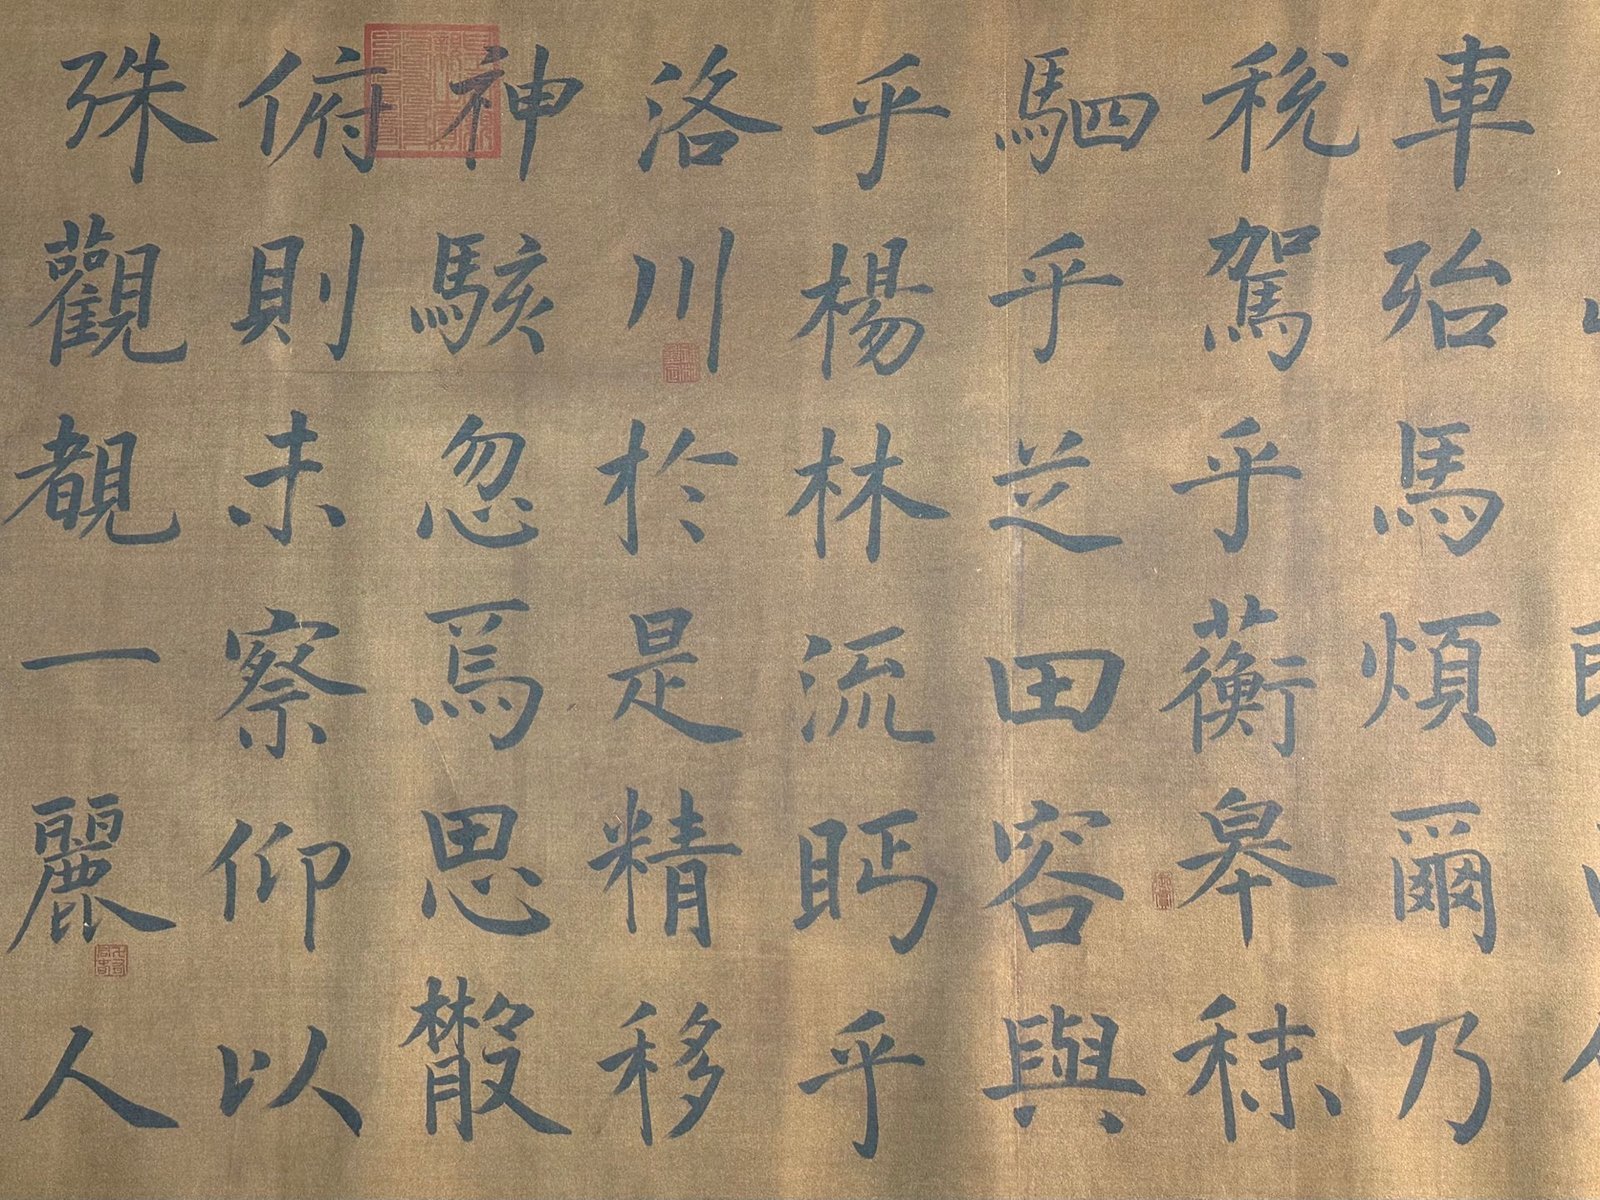 車殆馬煩爾乃
稅駕乎蘅皋秣
駟乎芝田容與
乎楊林流眄乎
洛川於是精移
神駭忽焉思散
俯則未察仰以
殊觀覩一麗人